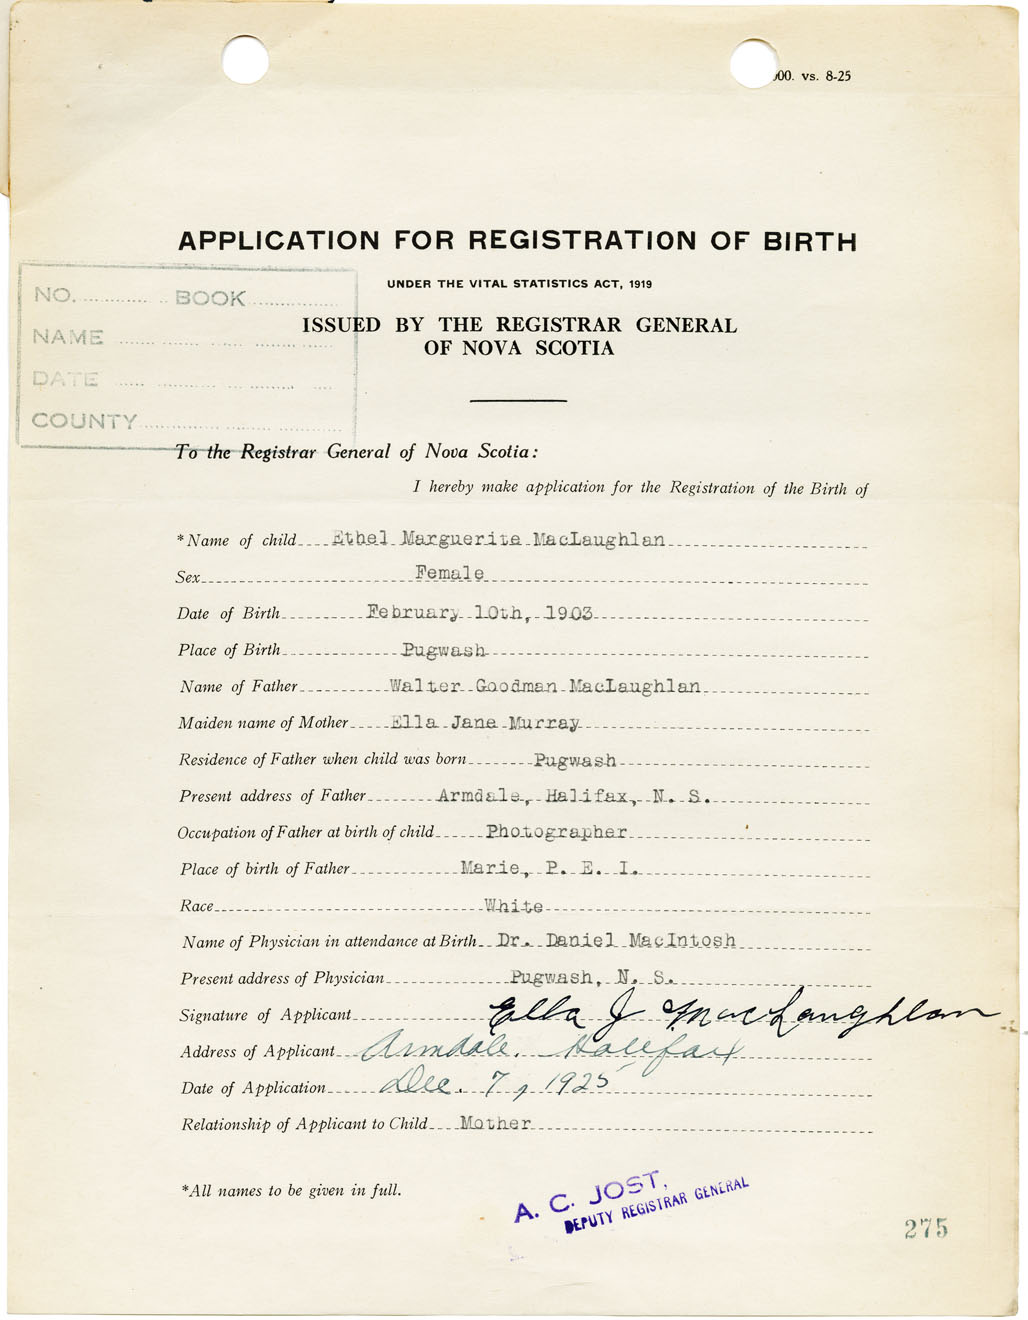 000. vs. 8-25
APPLICATION FOR REGISTRATION OF BIRTH
UNDER THE VITAL STATISTICS ACT, 1919
ISSUED BY THE REGISTRAR GENERAL
OF NOVA SCOTIA
NO. BOOK
NAME
DATE
COUNTY
To the Registrar General of Nova Scotia:
I hereby make application for the Registration of the Birth of
*Name of child Ethel Marguerite MacLaughlan
Sex Female
Date of Birth February 10th, 1903
Place of Birth Pugwash
Name of Father Walter Goodman MacLaughlan
Maiden name of Mother Ella Jane Murray
Residence of Father when child was born Pugwash
Present address of Father Armdale, Halifax, N. S.
Occupation of Father at birth of child Photographer
Place of birth of Father Marie, P. E. I.
Race White
Name of Physician in attendance at Birth Dr. Daniel MacIntosh
Present address of Physician Pugwash, N. S.
Signature of Applicant Ella J MacLaughlan
Address of Applicant Armdale. Halifax
Date of Application Dec. 7, 1925
Relationship of Applicant to Child Mother
*All names to be given in full.
A. C. JOST,
DEPUTY REGISTRAR GENERAL
275